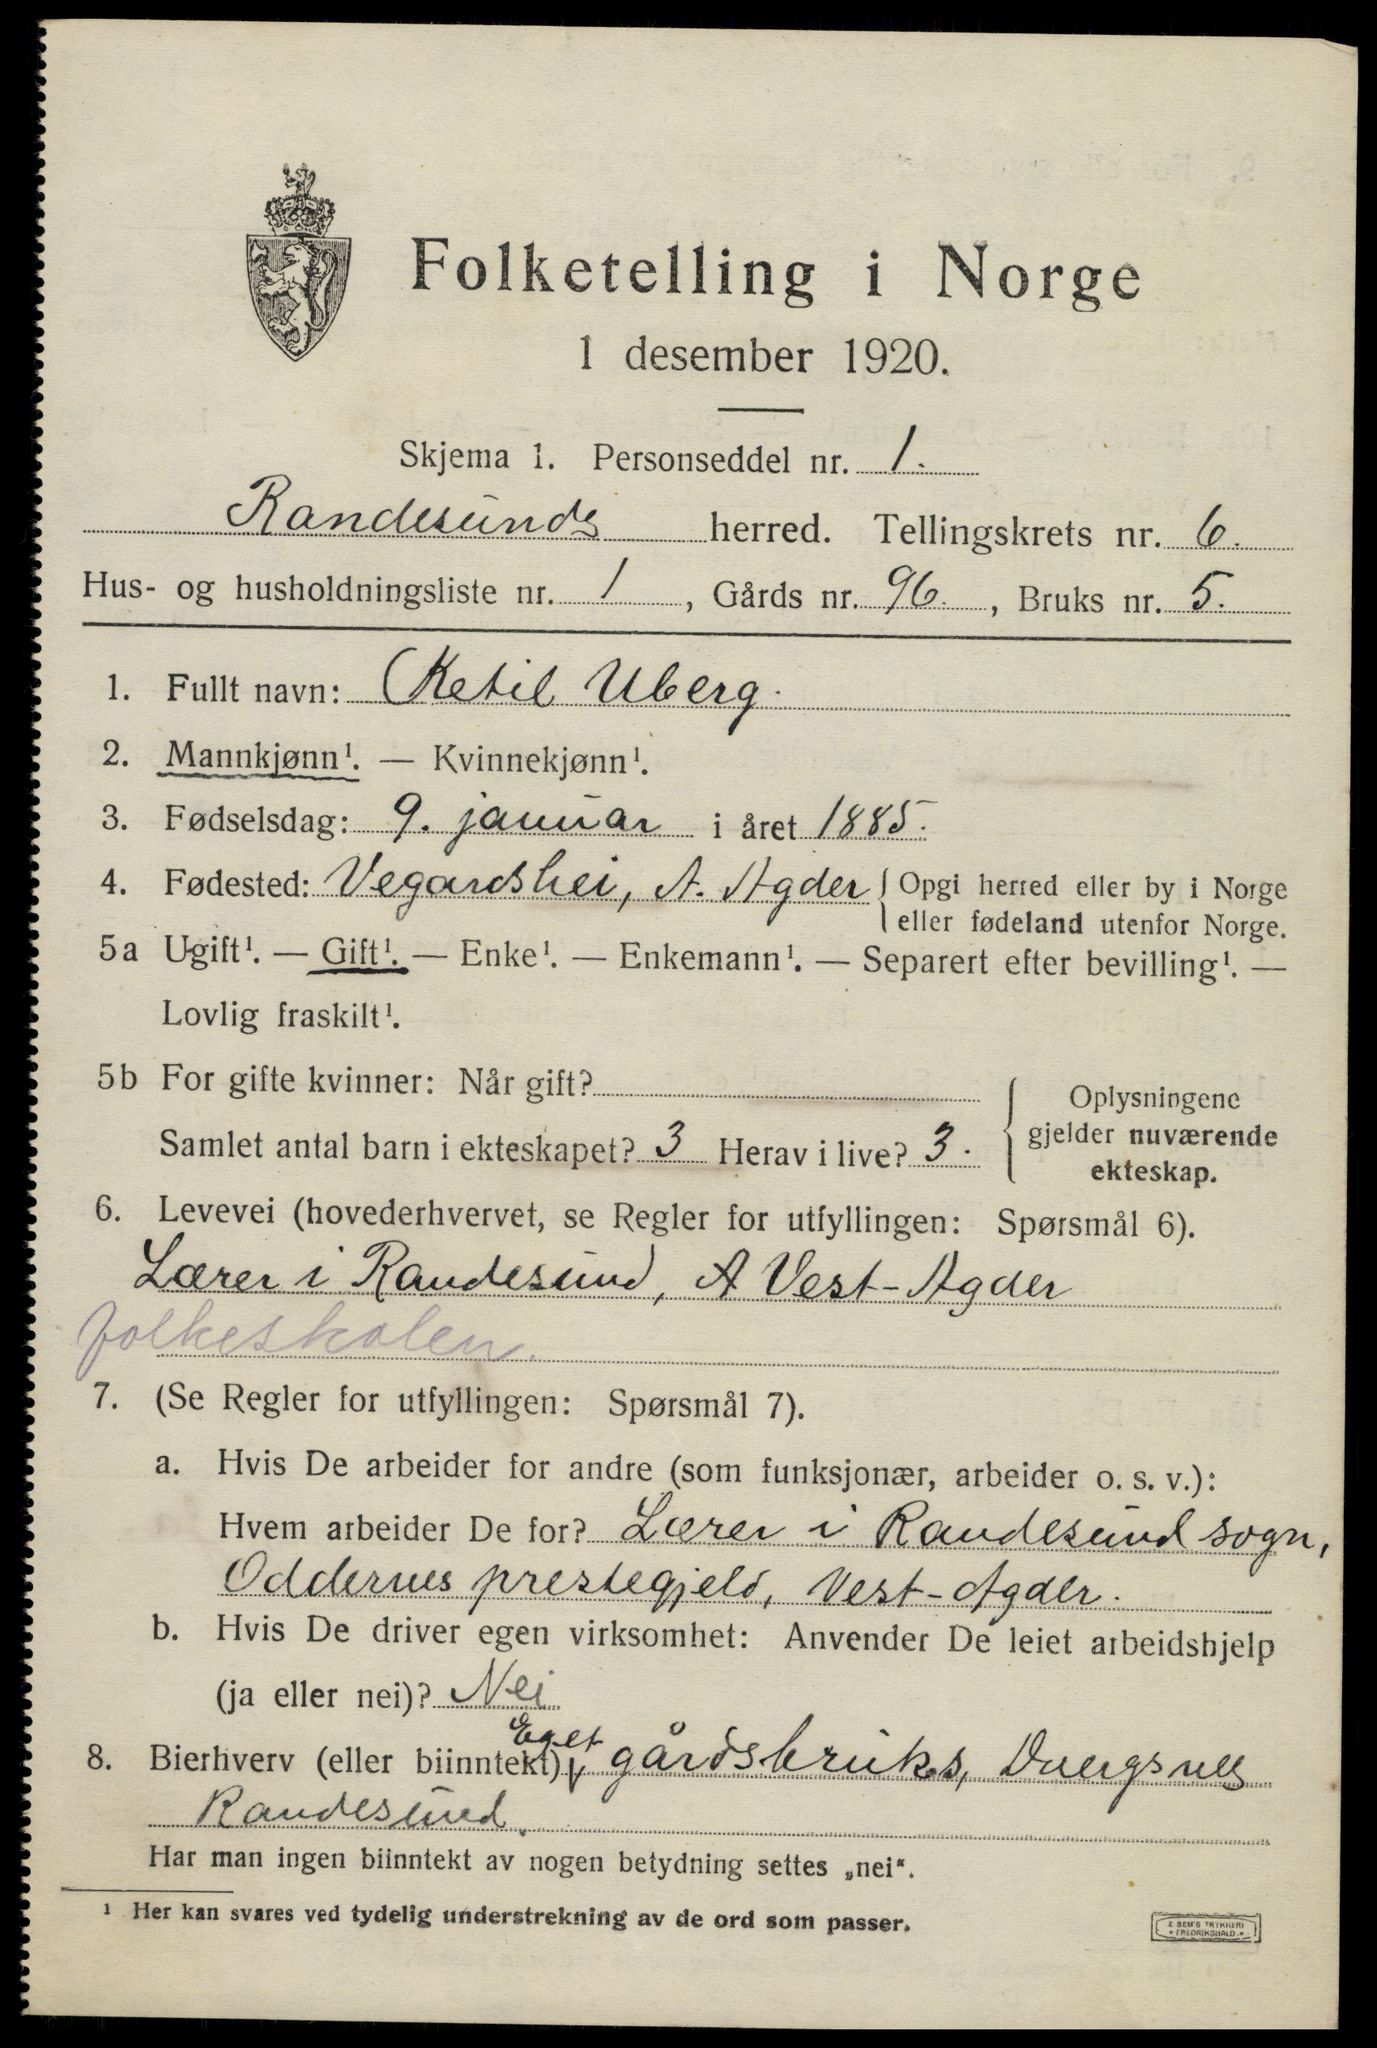 Folketelling i Norge
1 desember 1920.
Skjema 1. Personseddel nr. 1.
Randesunds herred. Tellingskrets nr. 6.
Hus- og husholdningsliste nr. 1, Gårds nr. 96., Bruks nr. 5.
1. Fullt navn: Ketil Uberg.
2. Mannkjønn¹. — Kvinnekjønn¹.
3. Fødselsdag: 9. januar i året 1885.
4. Fødested: Vegardshei, A. Agder { Opgi herred eller by i Norge
eller fødeland utenfor Norge.
5a Ugift¹. — Gift¹. — Enke¹. — Enkemann¹. — Separert efter bevilling¹. —
Lovlig fraskilt¹.
5b For gifte kvinner: Når gift?
Samlet antal barn i ekteskapet? 3 Herav i live? 3.
Oplysningene
gjelder nuværende
ekteskap.
6. Levevei (hovederhvervet, se Regler for utfyllingen: Spørsmål 6).
Lærer i Randesund, A Vest-Agder
folkeskolen.
7. (Se Regler for utfyllingen: Spørsmål 7).
a. Hvis De arbeider for andre (som funksjonær, arbeider o. s. v.):
Hvem arbeider De for? Lærer i Randesund sogn,
Oddernes prestegjeld, Vest-Agder.
b. Hvis De driver egen virksomhet: Anvender De leiet arbeidshjelp
(ja eller nei)? Nei
Eget
8. Bierhverv (eller biinntekt) gårdsbruks, Dvergsnes
Randesund.
Har man ingen biinntekt av nogen betydning settes „nei“.
¹ Her kan svares ved tydelig understrekning av de ord som passer.
E. SEM'S TRYKKERI
FREDRIKSHALD